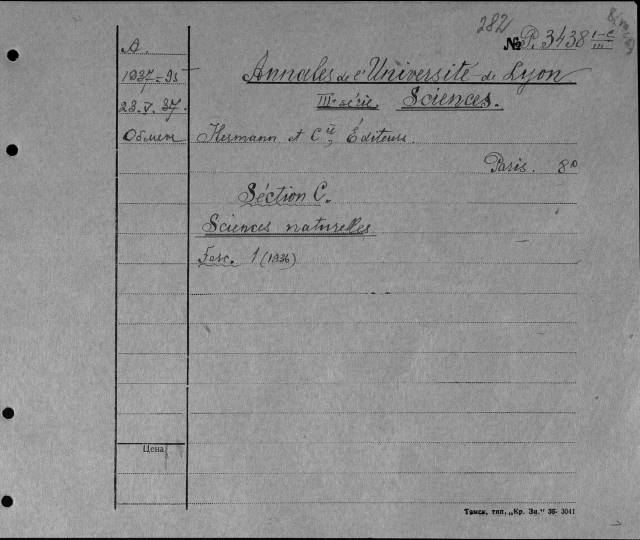 282
№ P. 3438 I-C/III
A.
1937-95
Annales de l'Université de Lyon
23.V.37.
IIIe série. Sciences.
Обмен
Hermann et Cie, Éditeurs.
Paris. 8°
Séction C.
Sciences naturelles
Fasc. 1 (1936)
Цена
Томск, тип. „Кр. Зн." 36- 3041